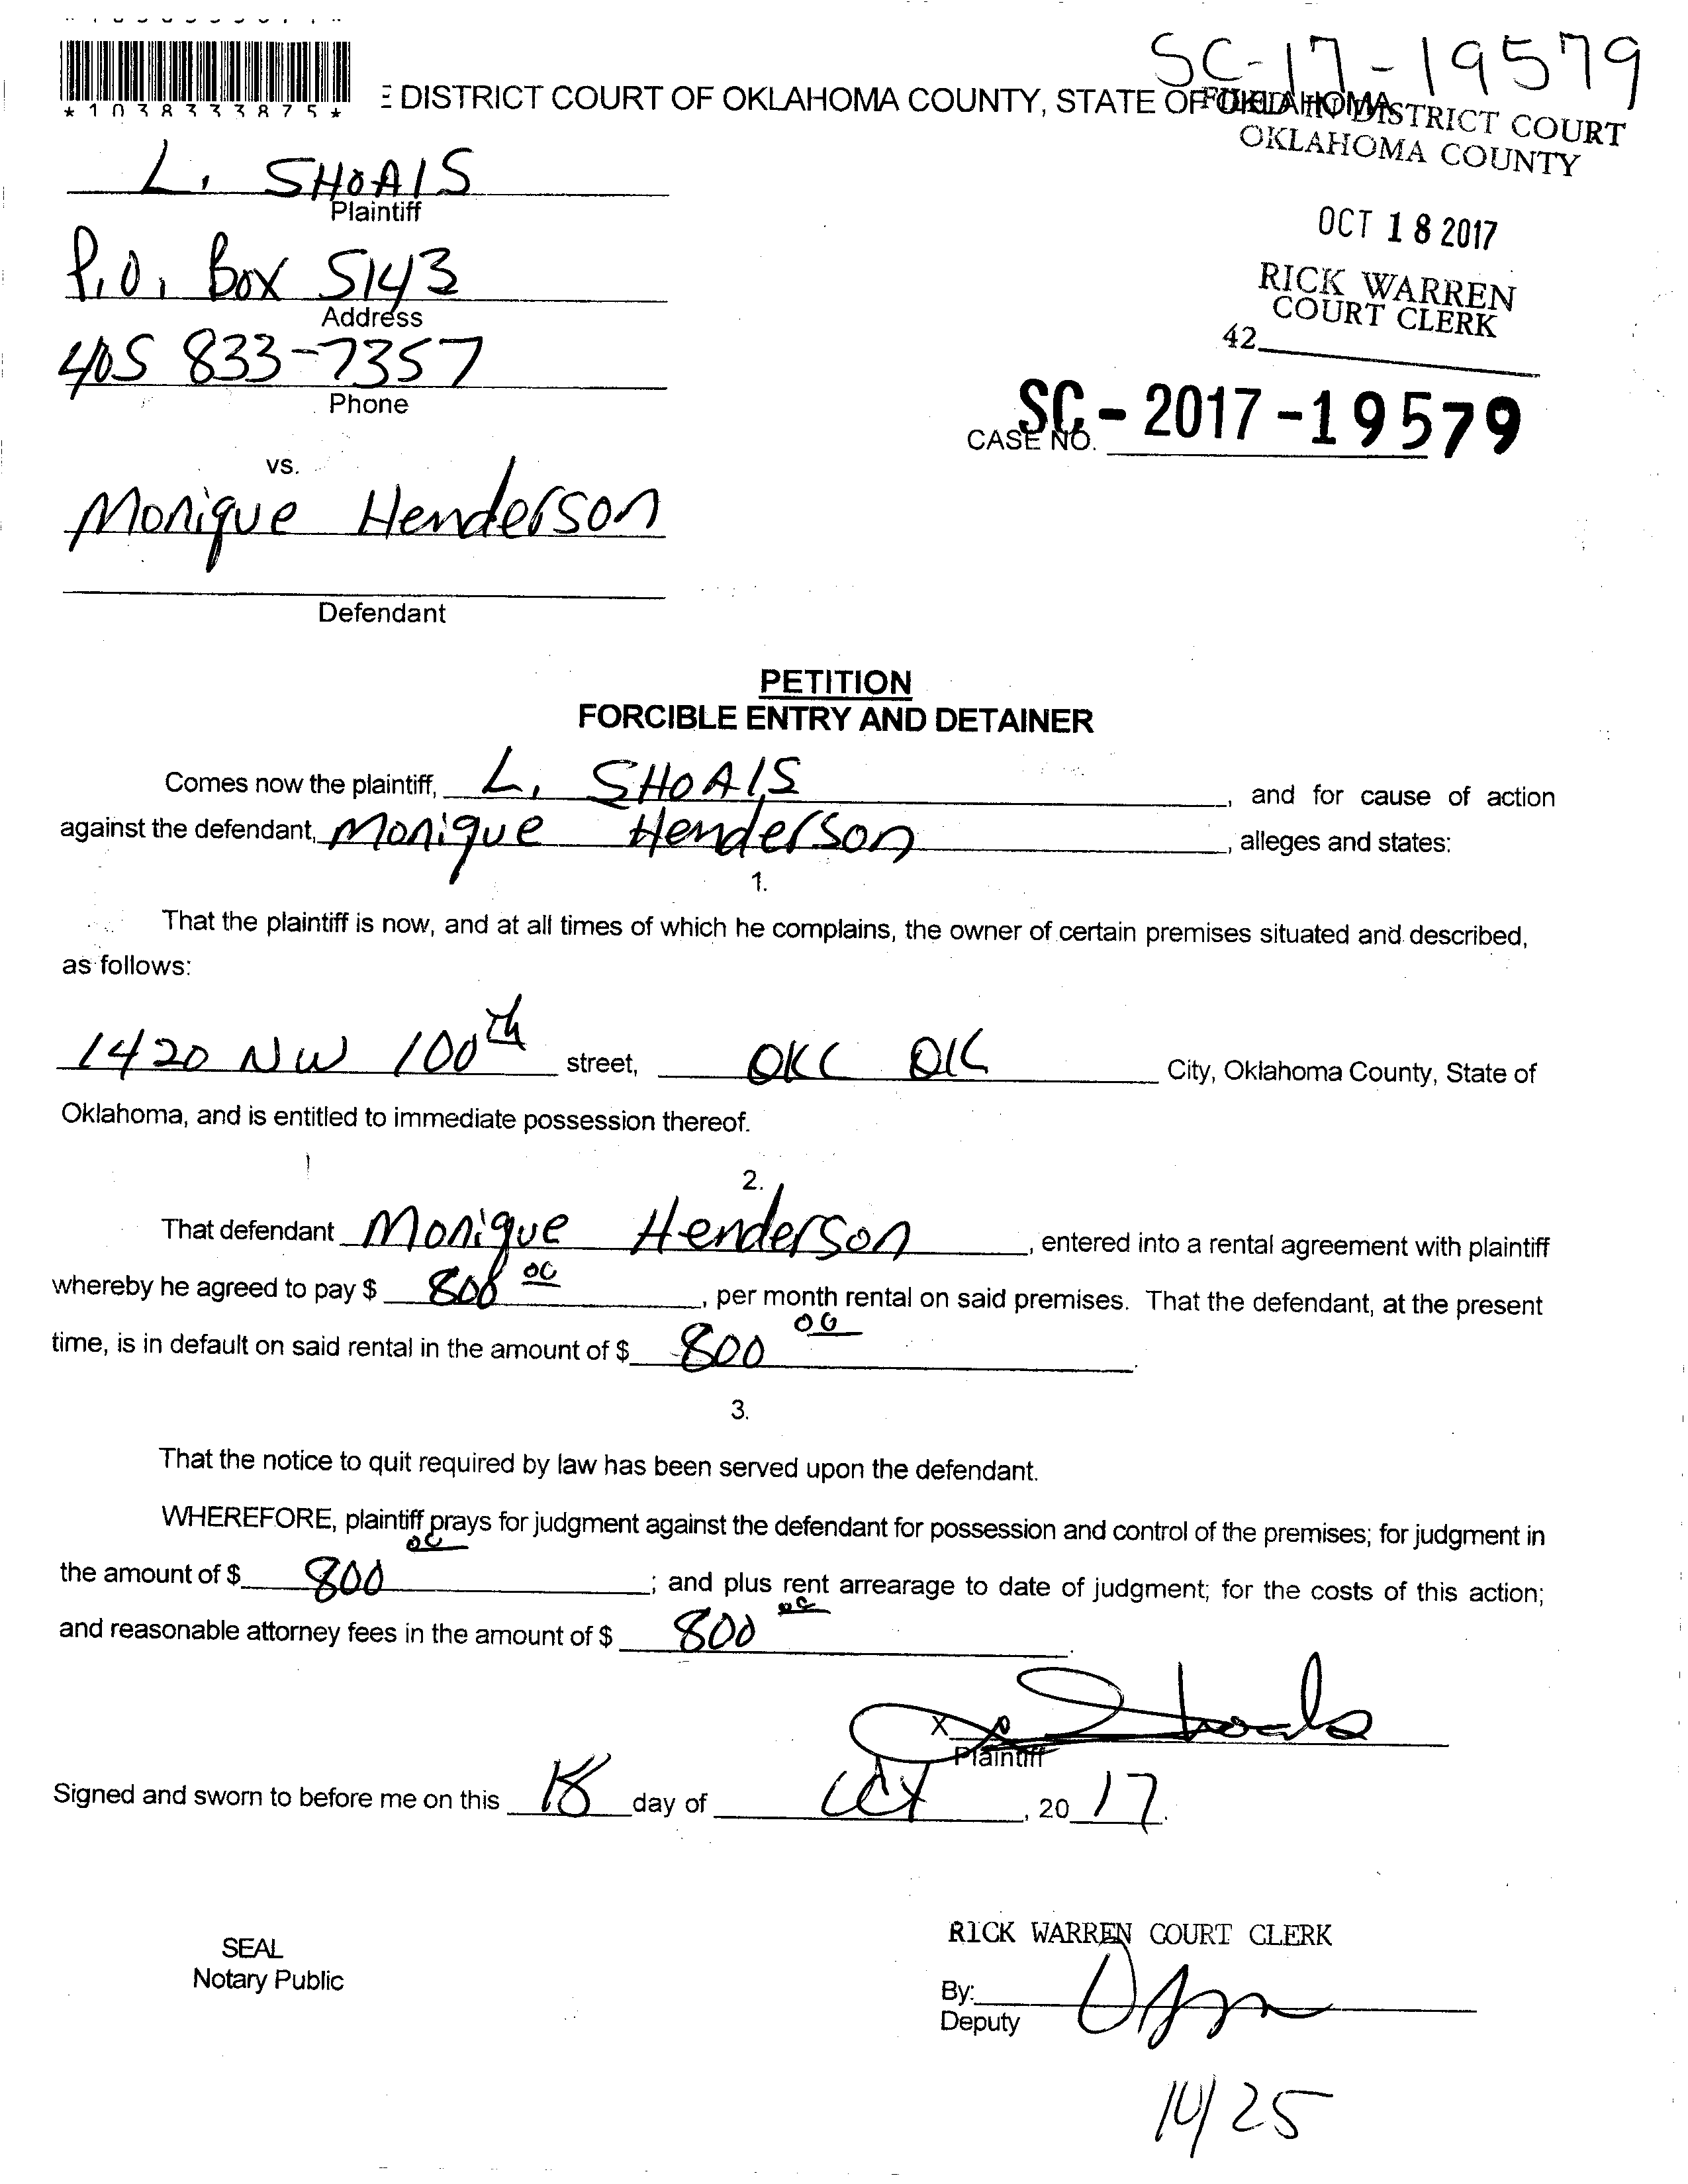 SC-17-19579
*1038333875*
E DISTRICT COURT OF OKLAHOMA COUNTY, STATE OF OKLAHOMA
FILED IN DISTRICT COURT
OKLAHOMA COUNTY
OCT 18 2017
RICK WARREN
COURT CLERK
42
L. SHOAIS
Plaintiff
P.O. Box 5143
Address
405 833-7357
Phone
CASE NO. SC-2017-19579
vs.
Monique Henderson
Defendant
PETITION
FORCIBLE ENTRY AND DETAINER
Comes now the plaintiff, L. SHOAIS, and for cause of action
against the defendant, Monique Henderson, alleges and states:
1.
That the plaintiff is now, and at all times of which he complains, the owner of certain premises situated and described,
as follows:
1420 NW 100th street, OKC OK City, Oklahoma County, State of
Oklahoma, and is entitled to immediate possession thereof.
2.
That defendant Monique Henderson, entered into a rental agreement with plaintiff
whereby he agreed to pay $ 800 00, per month rental on said premises. That the defendant, at the present
time, is in default on said rental in the amount of $ 800 00.
3.
That the notice to quit required by law has been served upon the defendant.
WHEREFORE, plaintiff prays for judgment against the defendant for possession and control of the premises; for judgment in
the amount of $ 800 00; and plus rent arrearage to date of judgment; for the costs of this action;
and reasonable attorney fees in the amount of $ 800 00.
X
Plaintiff
Signed and sworn to before me on this 18 day of Oct, 2017.
RICK WARREN COURT CLERK
SEAL
Notary Public
By:
Deputy
10/25